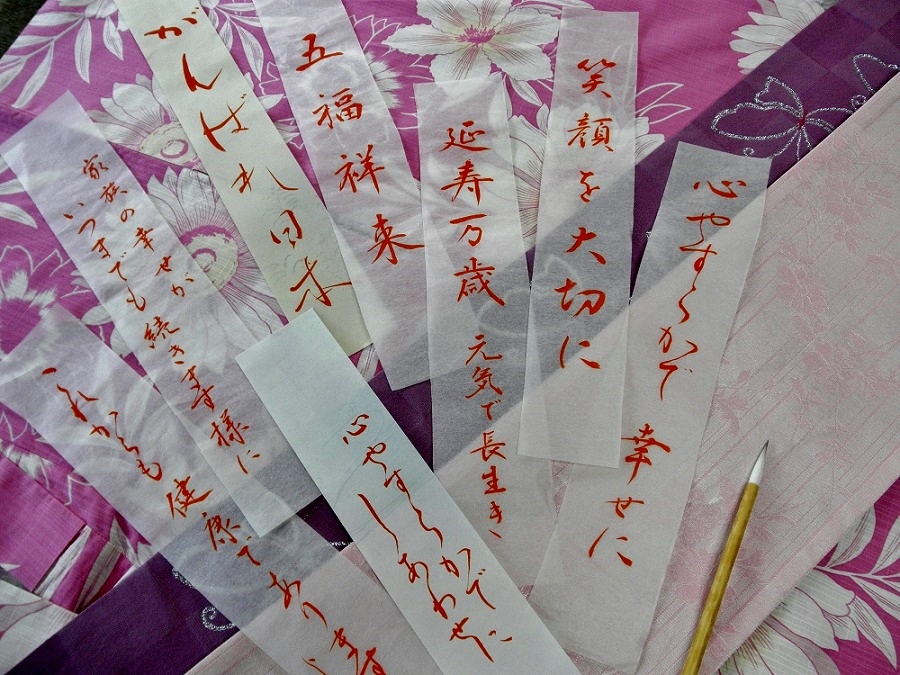 心やすらかで 幸せに
笑顔を大切に
延寿万歳 元気で長生き
五福祥来
がんばれ日本
家族の幸せが
いつまでも続きます様に
心やすらかで
しあわせに
これからも健康であります